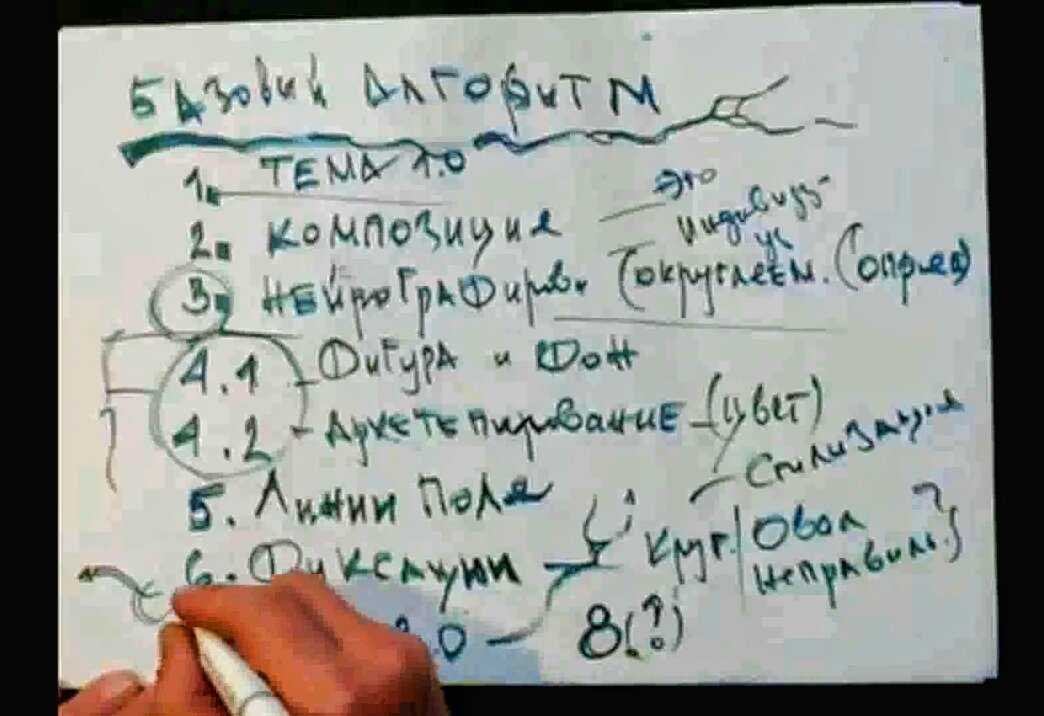 БАЗОВЫЙ АЛГОРИТМ
1. ТЕМА 1.0
2. КОМПОЗИЦИЯ
3. НЕЙРОГРАФИРОВ (округляем. (опред)
4.1 - ФИГУРА и ФОН
4.2 - АРХЕТЕПИРОВАНИЕ - (цвет)
Стилизация
5. ЛИНИИ ПОЛЯ
6. ФИКСАЦИИ
Круг. / Овал
неправильн.)
.0 - 8(?)